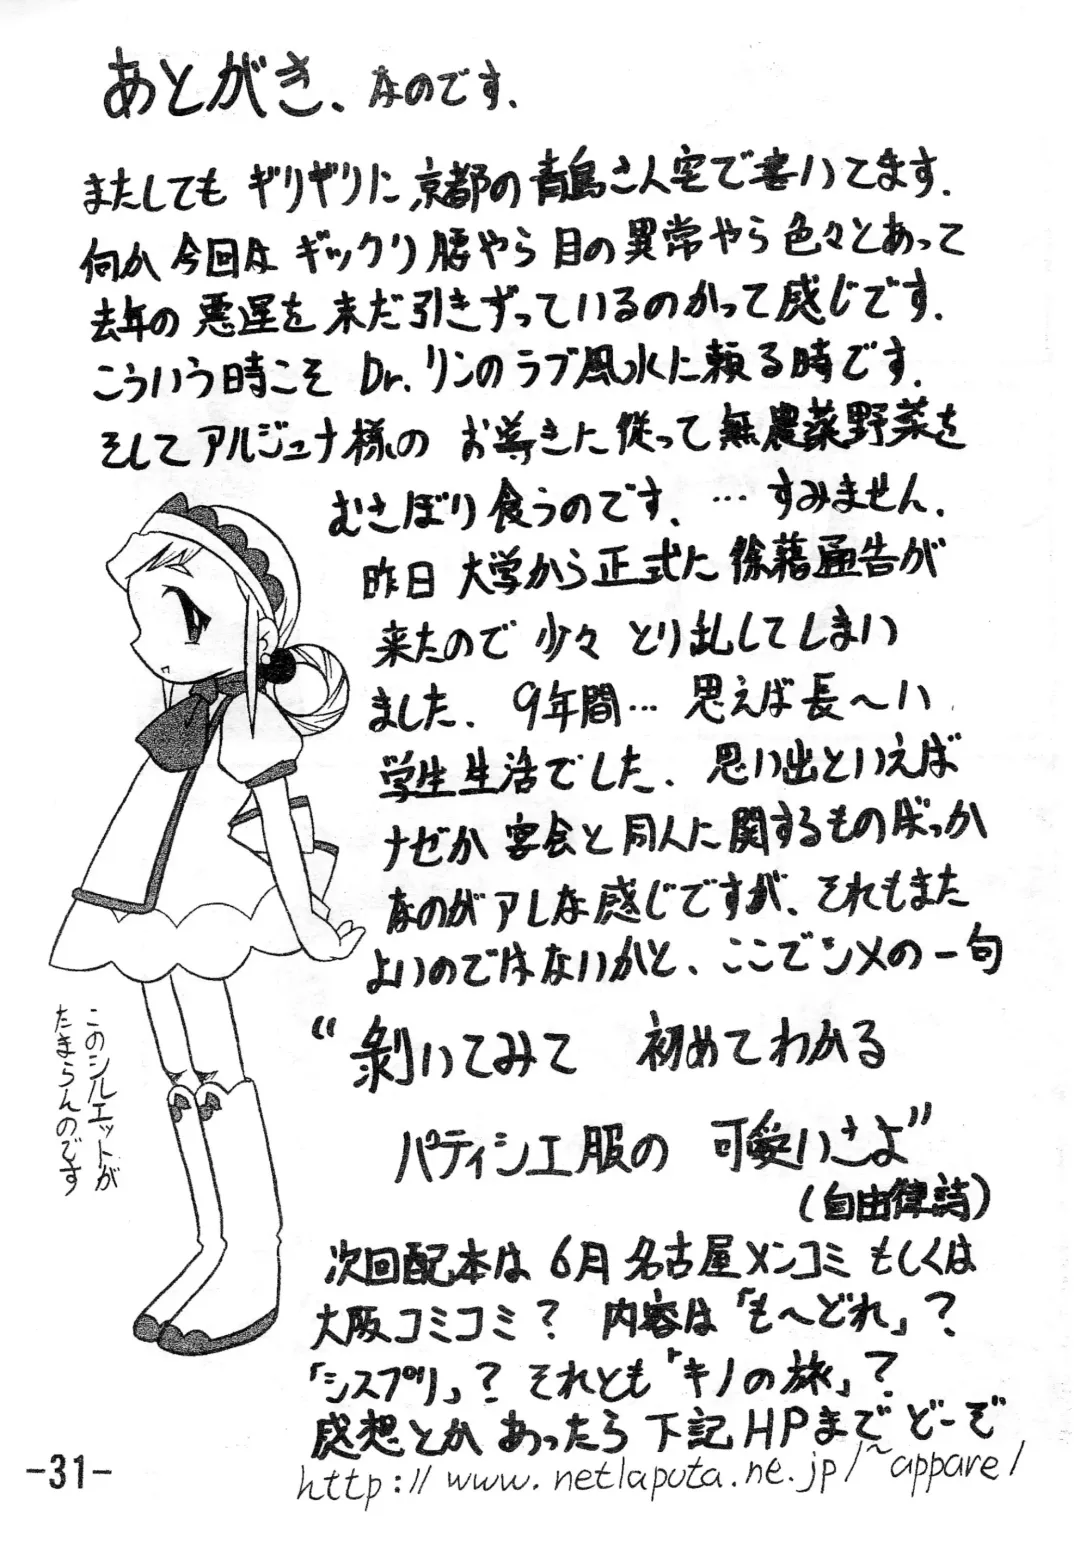 あとがき、なのです、
またしてもギリギリに、京都の青島さん宅で書いてます.
何か今回はギックリ腰やら目の異常やら色々とあって
去年の悪運を未だ引きずっているのかって感じです.
こういう時こそ Dr.リンのラブ風水に頼る時です.
そしてアルジュナ様の お導きに従って無農薬野菜を
むさぼり食うのです、…すみません.
昨日 大学から正式に除籍通告が
来たので 少々 とり乱してしまい
ました、9年間… 思えば長〜い
学生生活でした、思い出といえば
ナゼか宴会と同人に関するものばっか
なのがアレな感じですが、それもまた
よいのではないかと、ここでシメの一句
“剥いてみて 初めてわかる
パティシエ服の 可愛いさよ”
(自由律詩)
次回配本は 6月 名古屋メンコミ もしくは
大阪コミコミ? 内容は「も〜どれ」?
「シスプリ」? それとも「キノの旅」?
感想とか あったら 下記HPまで ど〜ぞ
http://www.netlaputa.ne.jp/~appare/
このシルエットが
たまらんのです
-31-